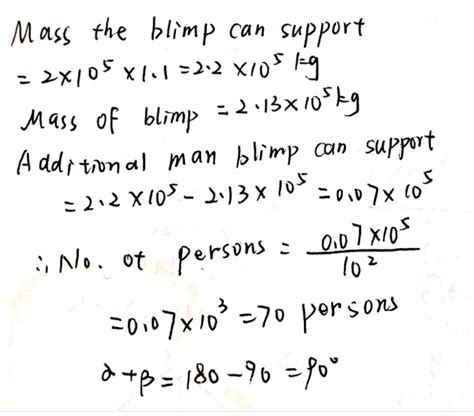 Mass the blimp can support
= 2×10⁵ ×1.1 = 2.2 ×10⁵ kg
Mass of blimp = 2.13×10⁵kg
Additional man blimp can support
= 2.2×10⁵ - 2.13 × 10⁵ = 0.07× 10⁵
∴ No. of persons = 0.07×10⁵ / 10²
= 0.07×10³ = 70 persons
α+β = 180 - 90 = 90°